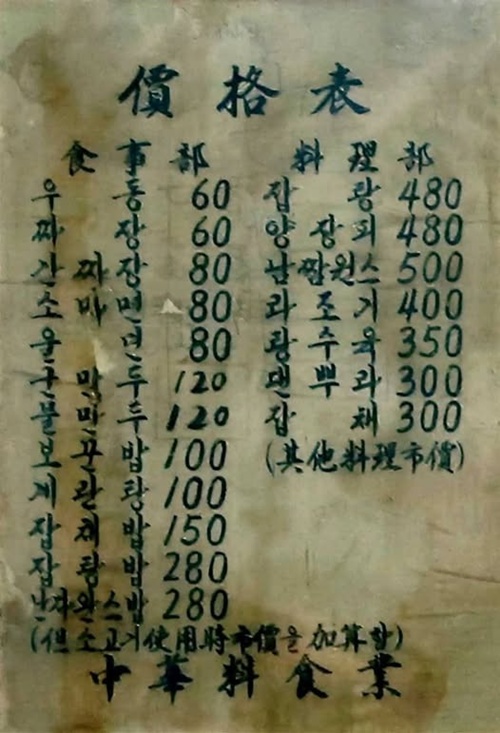 價格表
食事部
우동 60
짜장 60
간짜장 80
소마면 80
울면 80
구만두 120
물만두 120
보끈밥 100
계란탕 100
잡채밥 150
잡탕밥 280
난자완스밥 280
(但 소고기使用時市價을加算함)
料理部
잡탕 480
양장피 480
남짬원스 500
라조기 400
탕수육 350
덴뿌라 300
잡채 300
(其他料理市價)
中華料食業